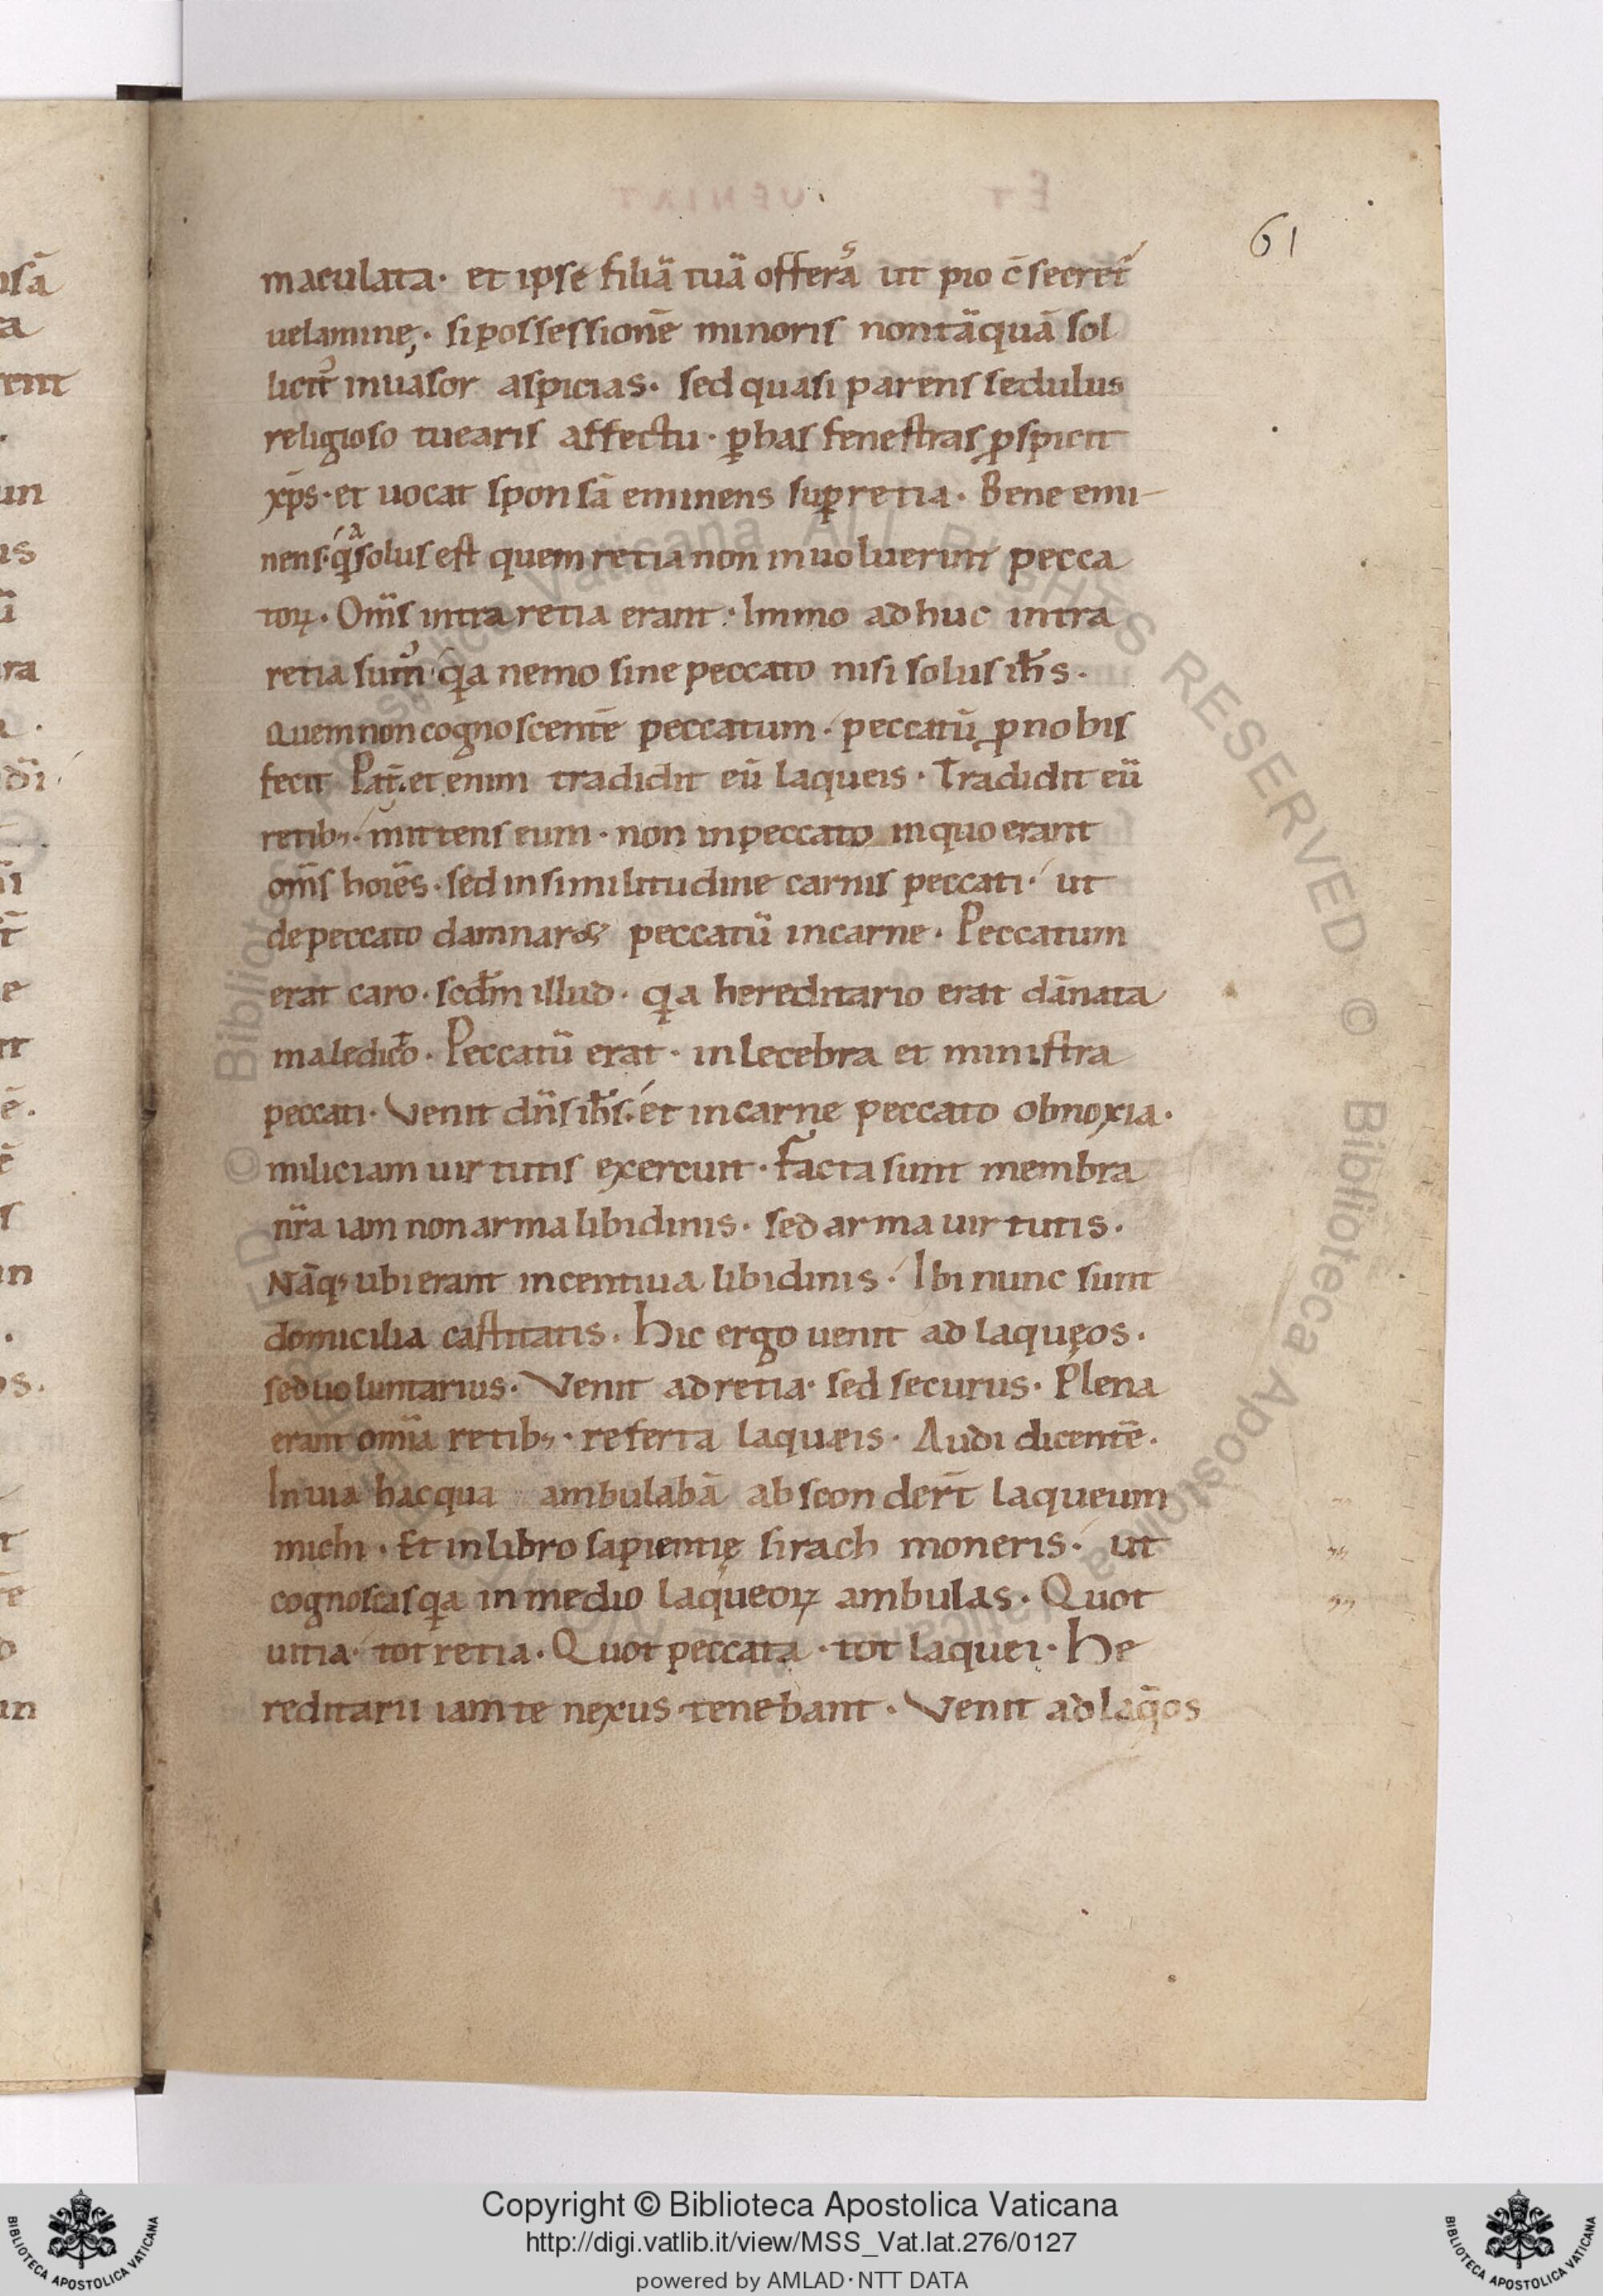 61
maculata· et ipse filiā tuā offerās ut pio c̄secret̄
uelamine,· si possessionē minoris non tāquā sol
licit᷒ inuasor aspicias· sed quasi parens sedulus
religioso tuearis affectu· ꝑ has fenestras ꝓspicit
xp̄s· et uocat sponsā eminens suꝑ retia· Bene emi-
nens· qͣ solus est quem retia non inuoluerunt pecca
toꝝ· Om̄s intra retia erant· Immo adhuc intra
retia sum᷒ qa nemo sine peccato nisi solus ih̄s·
quem non cognoscentē peccatum· peccatū ꝓ nobis
fecit Pat̄· et enim tradidit eū laqueis· Tradidit eū
retib;· mittens eum· non in peccato in quo erant
om̄s hoīes· sed in similitudine carnis peccati· ut
de peccato damnar& peccatū in carne· Peccatum
erat caro· scd̄m illud· qa hereditario erat dānata
maledicto· Peccatū erat· inlecebra et ministra
peccati· Venit dn̄s ih̄s· et in carne peccato obnoxia·
miliciam uirtutis exercuit· Facta sunt membra
nr̄a iam non arma libidinis· sed arma uirtutis·
Nāq; ubi erant incentiua libidinis· Ibi nunc sunt
domicilia castitatis· Hic ergo uenit ad laquęos·
sed uoluntarius· Venit ad retia· sed securus· Plena
erant omīa retib;· referta laquæis· Audi dicentē·
In uia hac qua ambulabā absconder̄t laqueum
michi· Et in libro sapientię sirach moneris· ut
cognoscas qa in medio laqueoꝝ ambulas· Quot
uitia· tot retia· Quot peccata· tot laquei· He
reditarii iam te nexus tenebant· Venit ad laq̄os
Copyright © Biblioteca Apostolica Vaticana
http://digi.vatlib.it/view/MSS_Vat.lat.276/0127
powered by AMLAD·NTT DATA